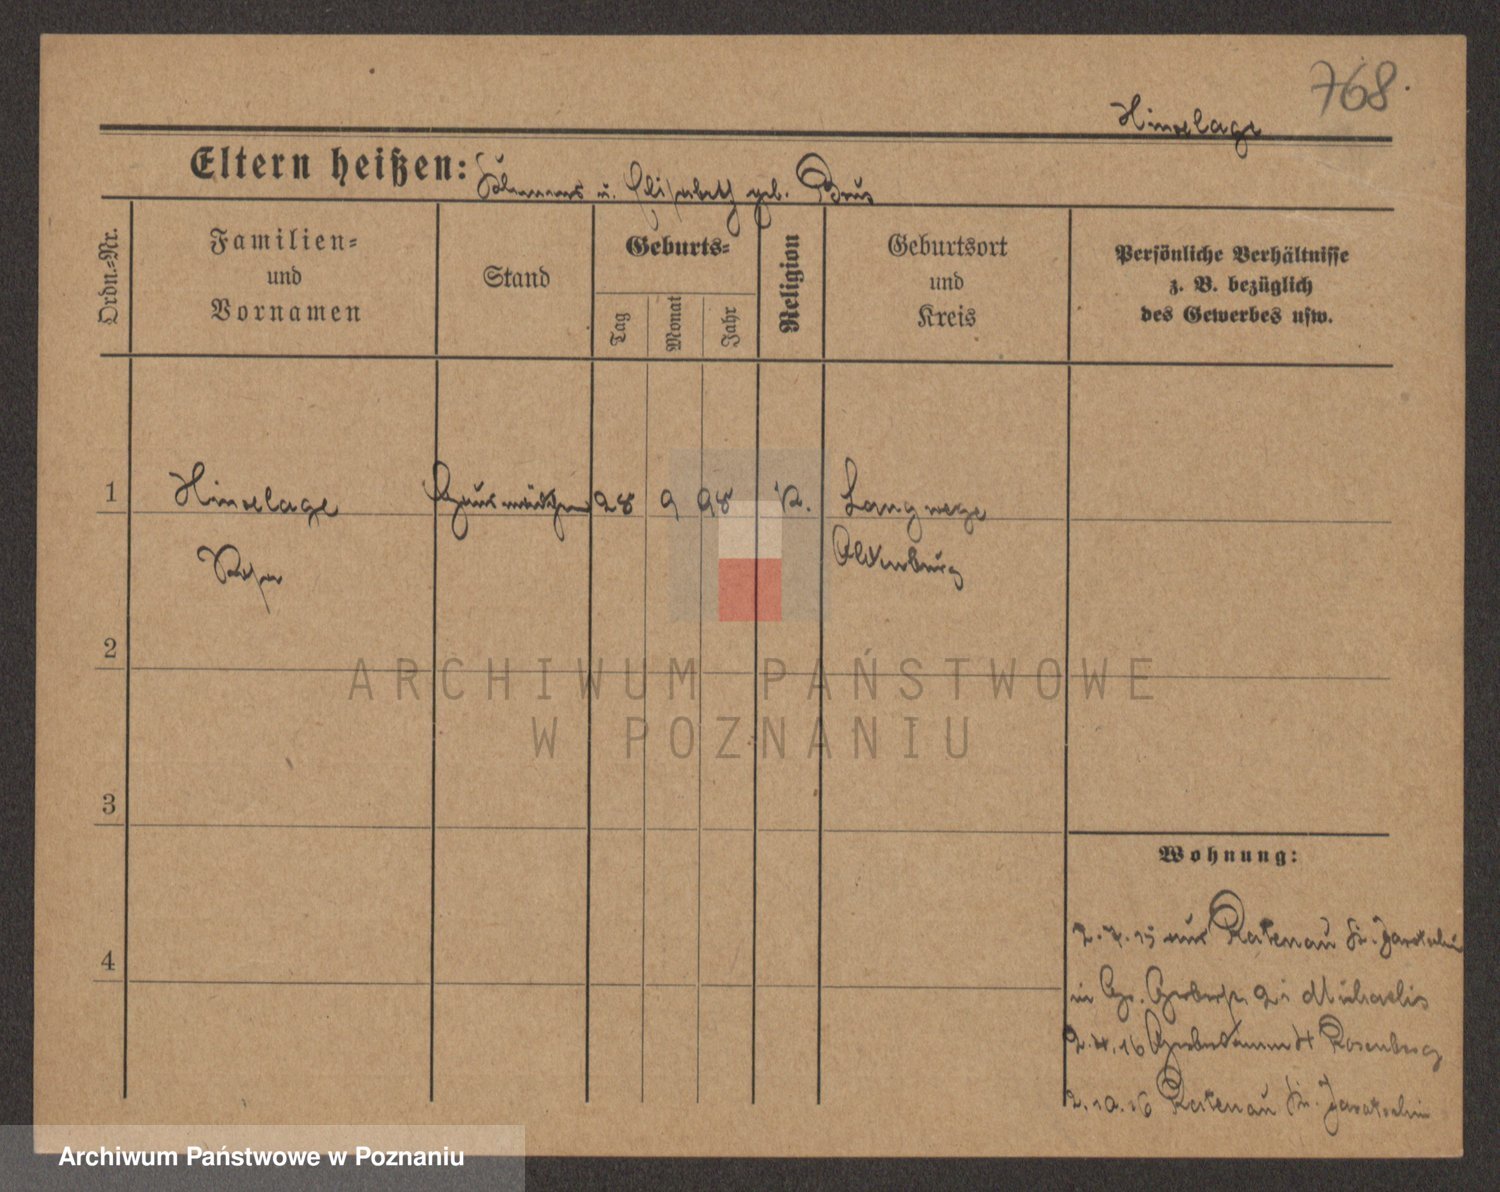 768.
Hinxlage
Eltern heißen: Klemens u. Elisabeth geb.
Ordn.=Nr.
Familien=
und
Vornamen
Stand
Geburts=
Tag
Monat
Jahr
Religion
Geburtsort
und
Kreis
Persönliche Verhältnisse
z. B. bezüglich
des Gewerbes usw.
1 Hinxlage Hausmädchen 28 9 98 k. Langwege
Oldenburg
2
3
4
Wohnung:
2.7.15 aus Ratenau Kr. Jarotschin
in 21 Michaelis
2.4.16 Gerberdamm 4 Rosenberg
2.10.16 Ratenau Kr. Jarotschin
ARCHIWUM PAŃSTWOWE
W POZNANIU
Archiwum Państwowe w Poznaniu